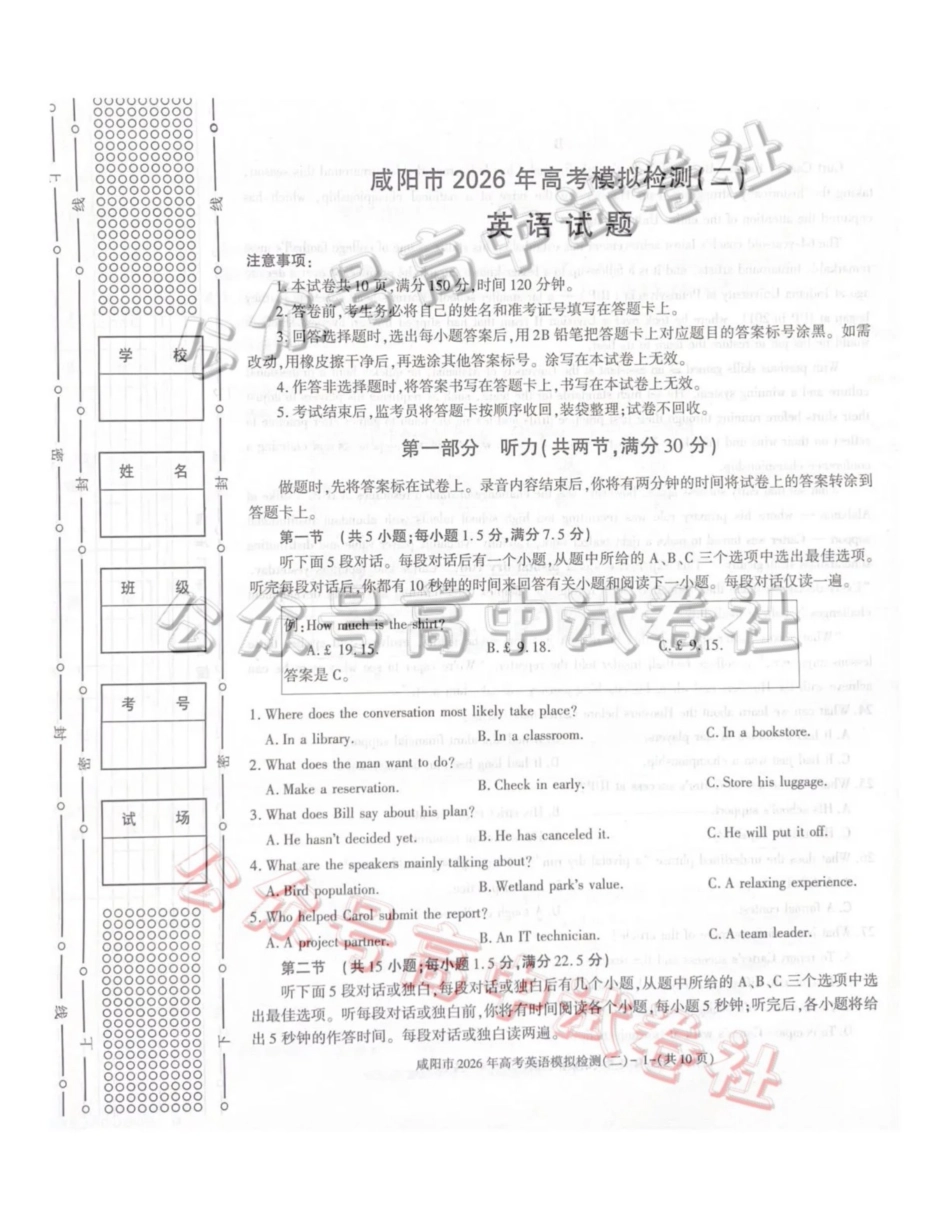 咸阳市2026年高考模拟检测(二)
英语试题
注意事项:
1.本试卷共10页,满分150分,时间120分钟。
2.答卷前,考生务必将自己的姓名和准考证号填写在答题卡上。
3.回答选择题时,选出每小题答案后,用2B铅笔把答题卡上对应题目的答案标号涂黑。如需
改动,用橡皮擦干净后,再选涂其他答案标号。涂写在本试卷上无效。
4.作答非选择题时,将答案书写在答题卡上,书写在本试卷上无效。
5.考试结束后,监考员将答题卡按顺序收回,装袋整理;试卷不回收。
第一部分 听力(共两节,满分30分)
做题时,先将答案标在试卷上。录音内容结束后,你将有两分钟的时间将试卷上的答案转涂到
答题卡上。
第一节 (共5小题;每小题1.5分,满分7.5分)
听下面5段对话。每段对话后有一个小题,从题中所给的A、B、C三个选项中选出最佳选项。
听完每段对话后,你都有10秒钟的时间来回答有关小题和阅读下一小题。每段对话仅读一遍。
例:How much is the shirt?
A.£ 19.15. B.£ 9.18. C.£ 9.15.
答案是C。
1. Where does the conversation most likely take place?
A. In a library. B. In a classroom. C. In a bookstore.
2. What does the man want to do?
A. Make a reservation. B. Check in early. C. Store his luggage.
3. What does Bill say about his plan?
A. He hasn't decided yet. B. He has canceled it. C. He will put it off.
4. What are the speakers mainly talking about?
A. Bird population. B. Wetland park's value. C. A relaxing experience.
5. Who helped Carol submit the report?
A. A project partner. B. An IT technician. C. A team leader.
第二节 (共15小题;每小题1.5分,满分22.5分)
听下面5段对话或独白,每段对话或独白后有几个小题,从题中所给的A、B、C三个选项中选
出最佳选项。听每段对话或独白前,你将有时间阅读各个小题,每小题5秒钟;听完后,各小题将给
出5秒钟的作答时间。每段对话或独白读两遍。
咸阳市2026年高考英语模拟检测(二)-1-(共10页)
学 校
姓 名
班 级
考 号
试 场
上
线
封
密
密
封
线
上
线
封
密
封
密
下
公众号高中试卷社
公众号高中试卷社
公众号高中试卷社